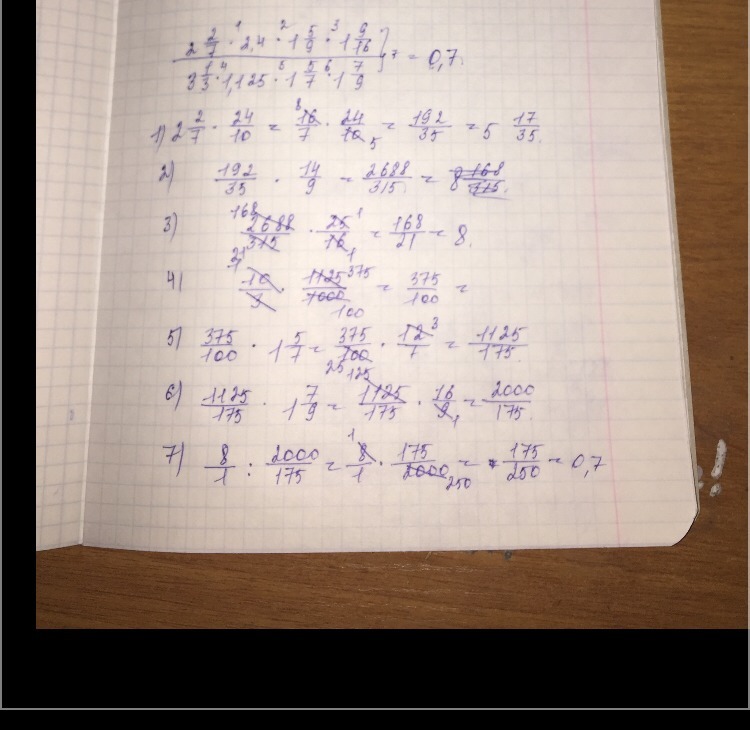 2 2/7 ·¹ 2,4 ·² 1 5/9 ·³ 1 9/16
3 1/3 ·⁴ 1,125 ·⁵ 1 5/7 ·⁶ 1 7/9 ] 7 = 0,7.
1) 2 2/7 · 24/10 = 16/7 · 24/10 = 192/35 = 5 17/35.
2) 192/35 · 14/9 = 2688/315 = 8
3) 2688/315 · 25/16 = 168/21 = 8.
4) 10/3 · 1125/1000 = 375/100 =
5) 375/100 · 1 5/7 = 375/100 · 12/7 = 1125/175.
6) 1125/175 · 1 7/9 = 1125/175 · 16/9 = 2000/175.
7) 8/1 : 2000/175 = 8/1 · 175/2000 = 175/250 = 0,7